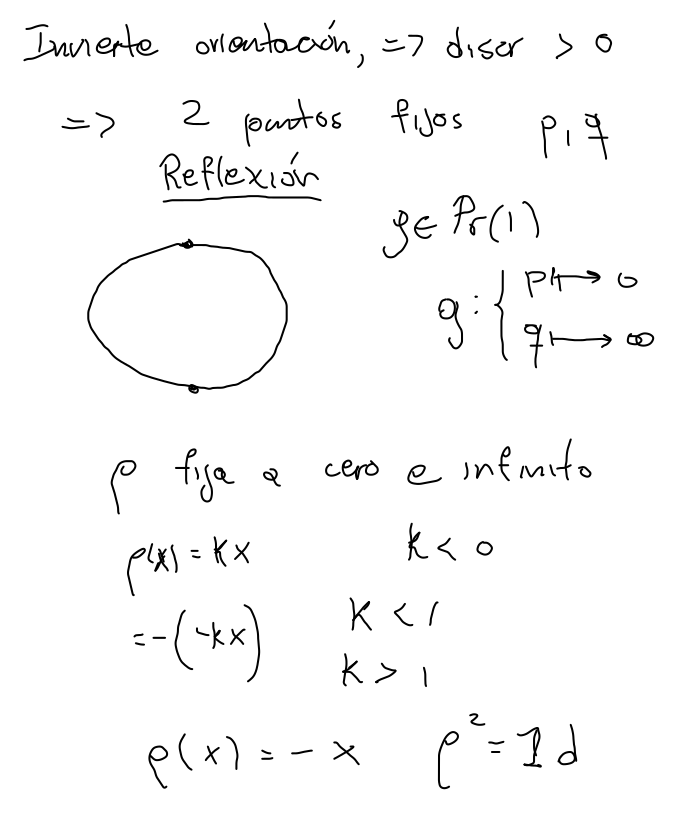 Invierte orientación, => discr > 0
=> 2 puntos fijos p, q
Reflexión
g ∈ Pr(1)
g: { p ↦ 0
q ↦ ∞
ρ fija a cero e infinito
ρ(x) = kx k < 0
= -(-kx) k < 1
k > 1
ρ(x) = - x ρ² = 1d